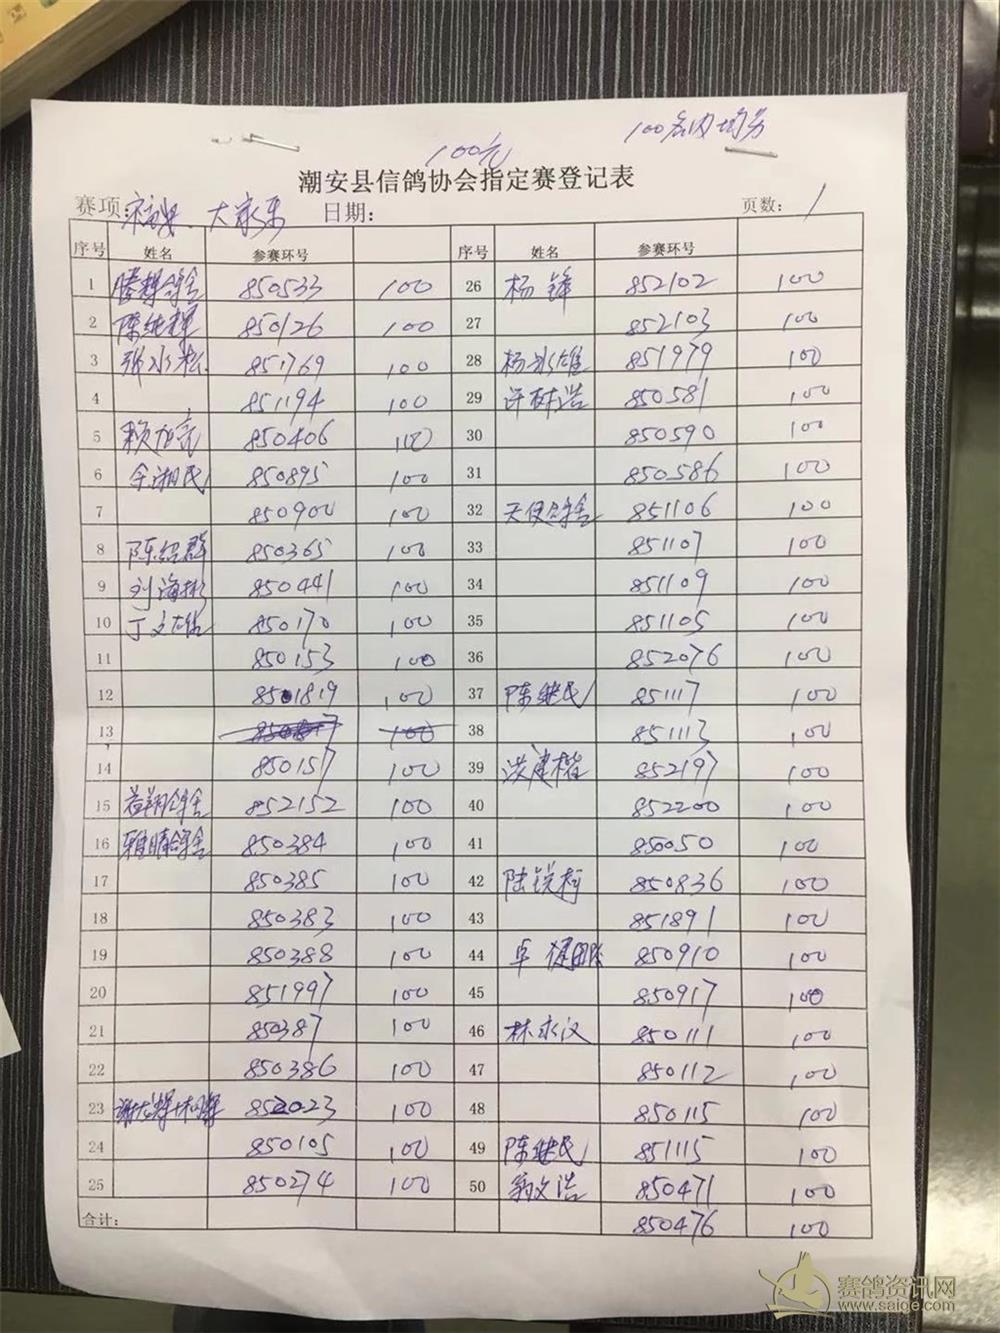 100名内均分
100元
潮安县信鸽协会指定赛登记表
赛项: 大家乐 日期: 页数: 1
序号 姓名 参赛环号 序号 姓名 参赛环号
1 腾翔鸽舍 850533 100 26 杨锋 852102 100
2 陈纯辉 850126 100 27 852103 100
3 张水松 851769 100 28 杨冰雄 851979 100
4 851194 100 29 许树浩 850581 100
5 赖旭亮 850406 100 30 850590 100
6 余湘民 850895 100 31 850586 100
7 850900 100 32 天使鸽舍 851106 100
8 陈绍群 850365 100 33 851107 100
9 刘海彬 850441 100 34 851109 100
10 丁文雄 850170 100 35 851105 100
11 850153 100 36 852076 100
12 851819 100 37 陈继民 851117 100
13 100 38 851113 100
14 850157 100 39 洪建楷 852197 100
15 益翔鸽舍 852152 100 40 852200 100
16 雅晴鸽舍 850384 100 41 850050 100
17 850385 100 42 陆锐柯 850836 100
18 850383 100 43 851891 100
19 850388 100 44 卓 850910 100
20 851997 100 45 850917 100
21 850387 100 46 林永汉 850111 100
22 850386 100 47 850112 100
23 852023 100 48 850115 100
24 850105 100 49 陈继民 851115 100
25 850274 100 50 翁文浩 850471 100
合计: 850476 100
赛鸽资讯网
www.saige.com